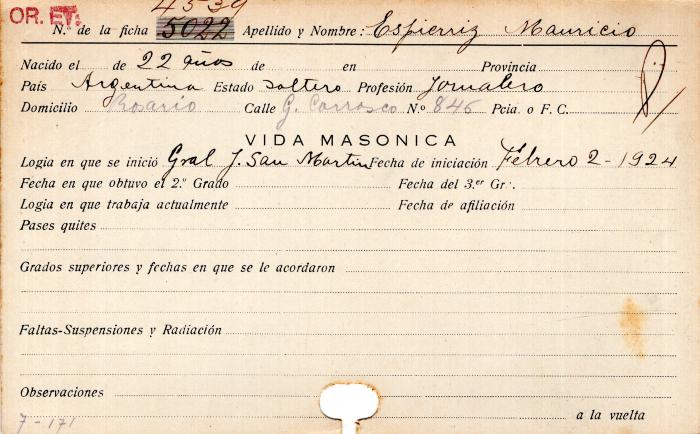 4539
OR. ET.
N.º de la ficha 5022 Apellido y Nombre: Espierriz Mauricio
Nacido el de 22 años de en Provincia
País Argentina Estado soltero Profesión Jornalero
Domicilio Rosario Calle G. Carrasco N.º 846 Pcia. o F. C.
VIDA MASONICA
Logia en que se inició Gral J. San Martin Fecha de iniciación Febrero 2-1924
Fecha en que obtuvo el 2.º Grado Fecha del 3.er Gr.
Logia en que trabaja actualmente Fecha de afiliación
Pases quites
Grados superiores y fechas en que se le acordaron
Faltas-Suspensiones y Radiación
Observaciones
7-171 a la vuelta